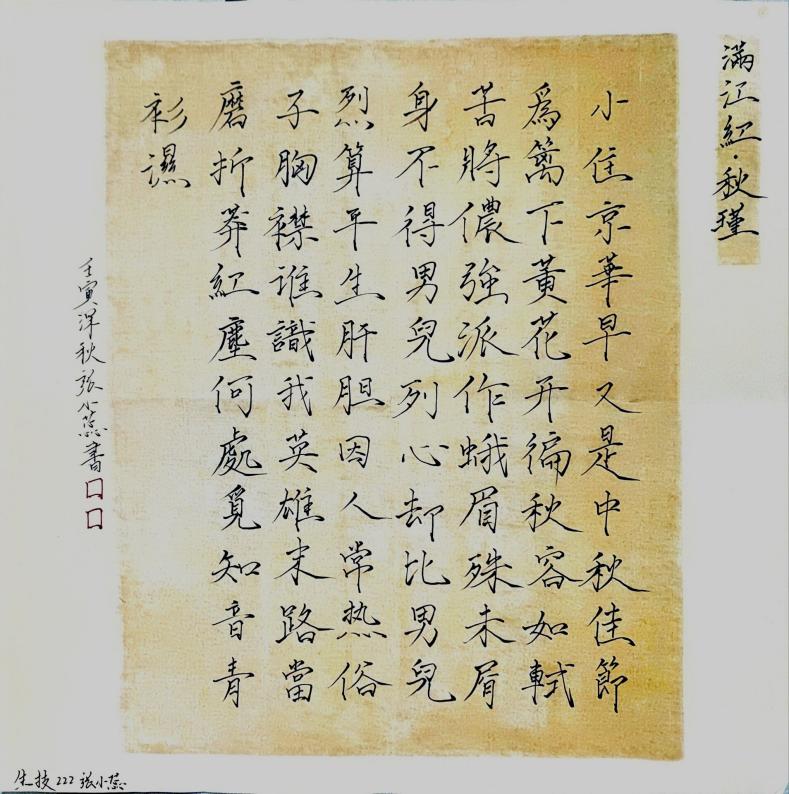 滿江紅·秋瑾
小住京華早又是中秋佳節
爲篱下黃花开徧秋容如軾
苦將儂強派作蛾眉殊未屑
身不得男兒列心却比男兒
烈算平生肝胆因人常热俗
子胸襟谁識我英雄末路當
磨折莽紅塵何處覓知音青
衫濕
壬寅洋秋張小蕊書
生技222 张小蕊